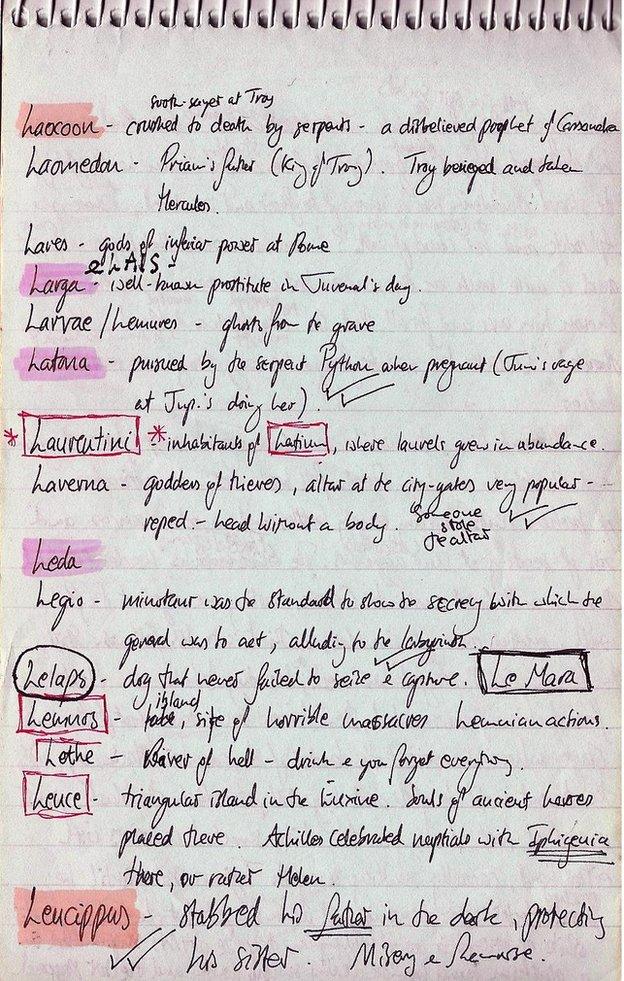 sooth-sayer at Troy
Laocoon - crushed to death by serpents - a disbelieved prophet cf Cassandra
Laomedon - Priam's father (King of Troy). Troy besieged and taken
Hercules.
Lares - gods of inferior power at Rome
e LAIS -
Larga - well-known prostitute in Juvenal's day.
Larvae/Lemures - ghosts from the grave
Latona - pursued by the serpent Python when pregnant (Juno's rage
at Jup.'s doing her).
* Laurentini * inhabitants of Latium, where laurels grew in abundance.
Laverna - goddess of thieves, altar at the city-gates very popular -
reped. - head without a body. Someone
stole
the altar
Leda
Legio - minotaur was the standard to show the secrecy with which the
general was to act, alluding to the labyrinth.
Lelaps - dog that never failed to seize e capture. Le Mara
island
Lemnos - site of horrible massacres Lemnian actions.
Lethe - River of hell - drink e you forget everything.
Leuce - triangular island in the Euxine. Souls of ancient heroes
placed there. Achilles celebrated nuptials with Iphigenia
there, or rather Helen.
Leucippus - stabbed his father in the dark, protecting
his sister. Misery e remorse.